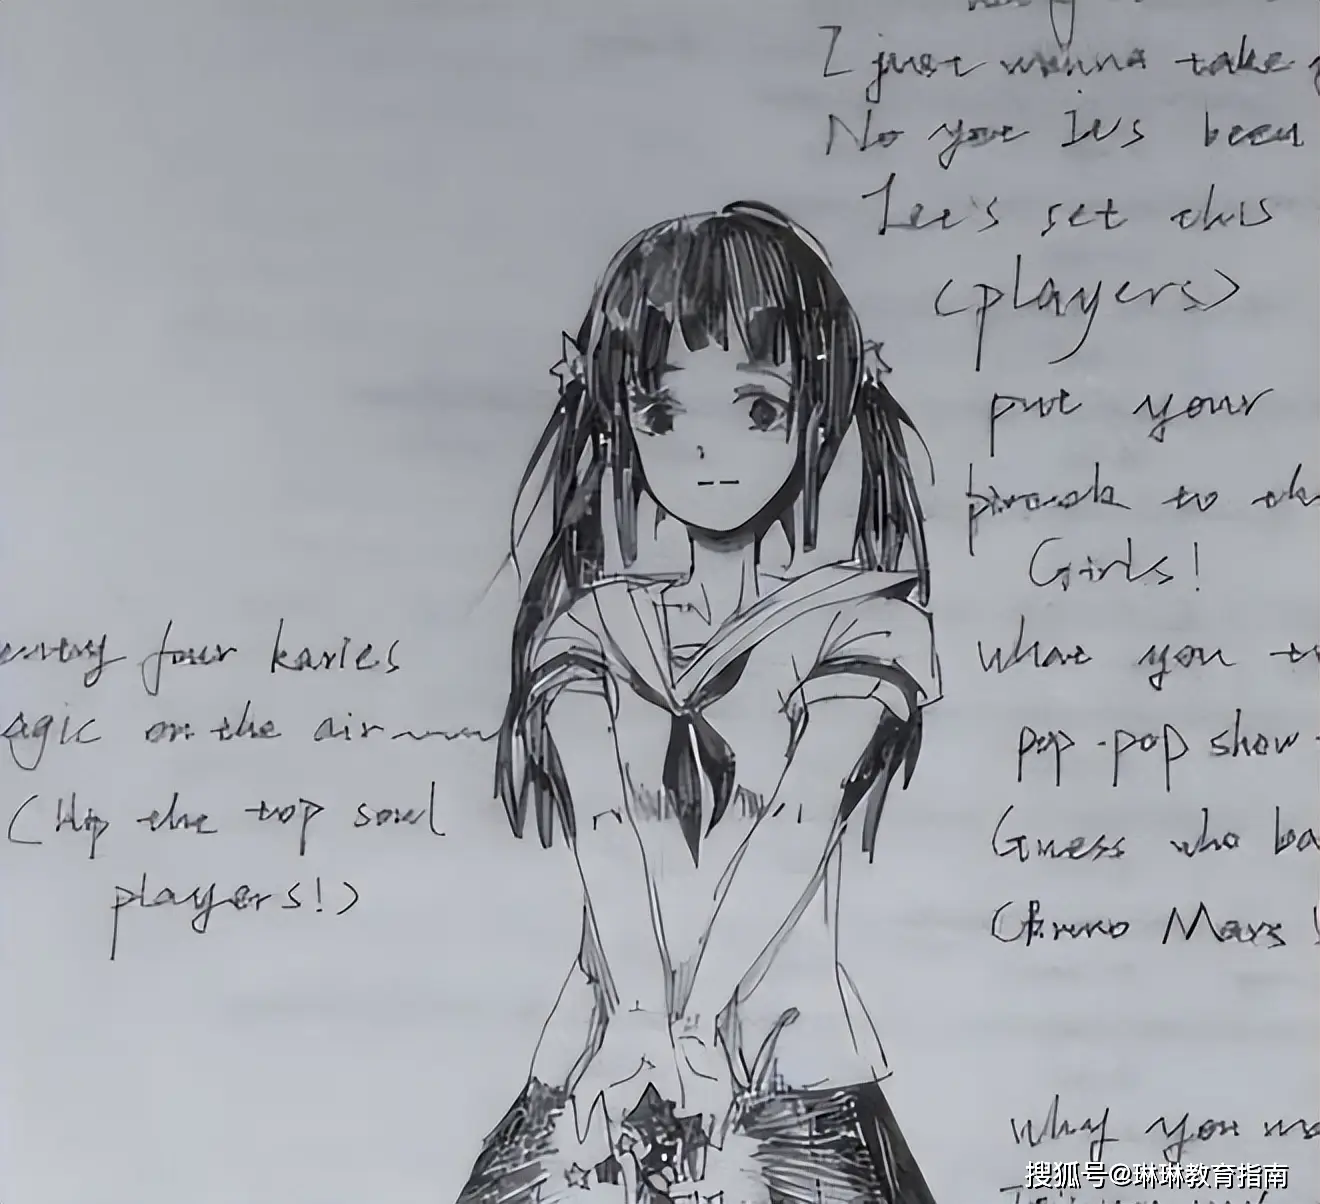 I just wanna take
No your Ius been
Let's set this
(players)
put your
to
Girls!
what you
pop-pop show
Guess who
(Bruno Mars
why you
four karies
agic on the air
(Hip the top soul
players!)
搜狐号@琳琳教育指南